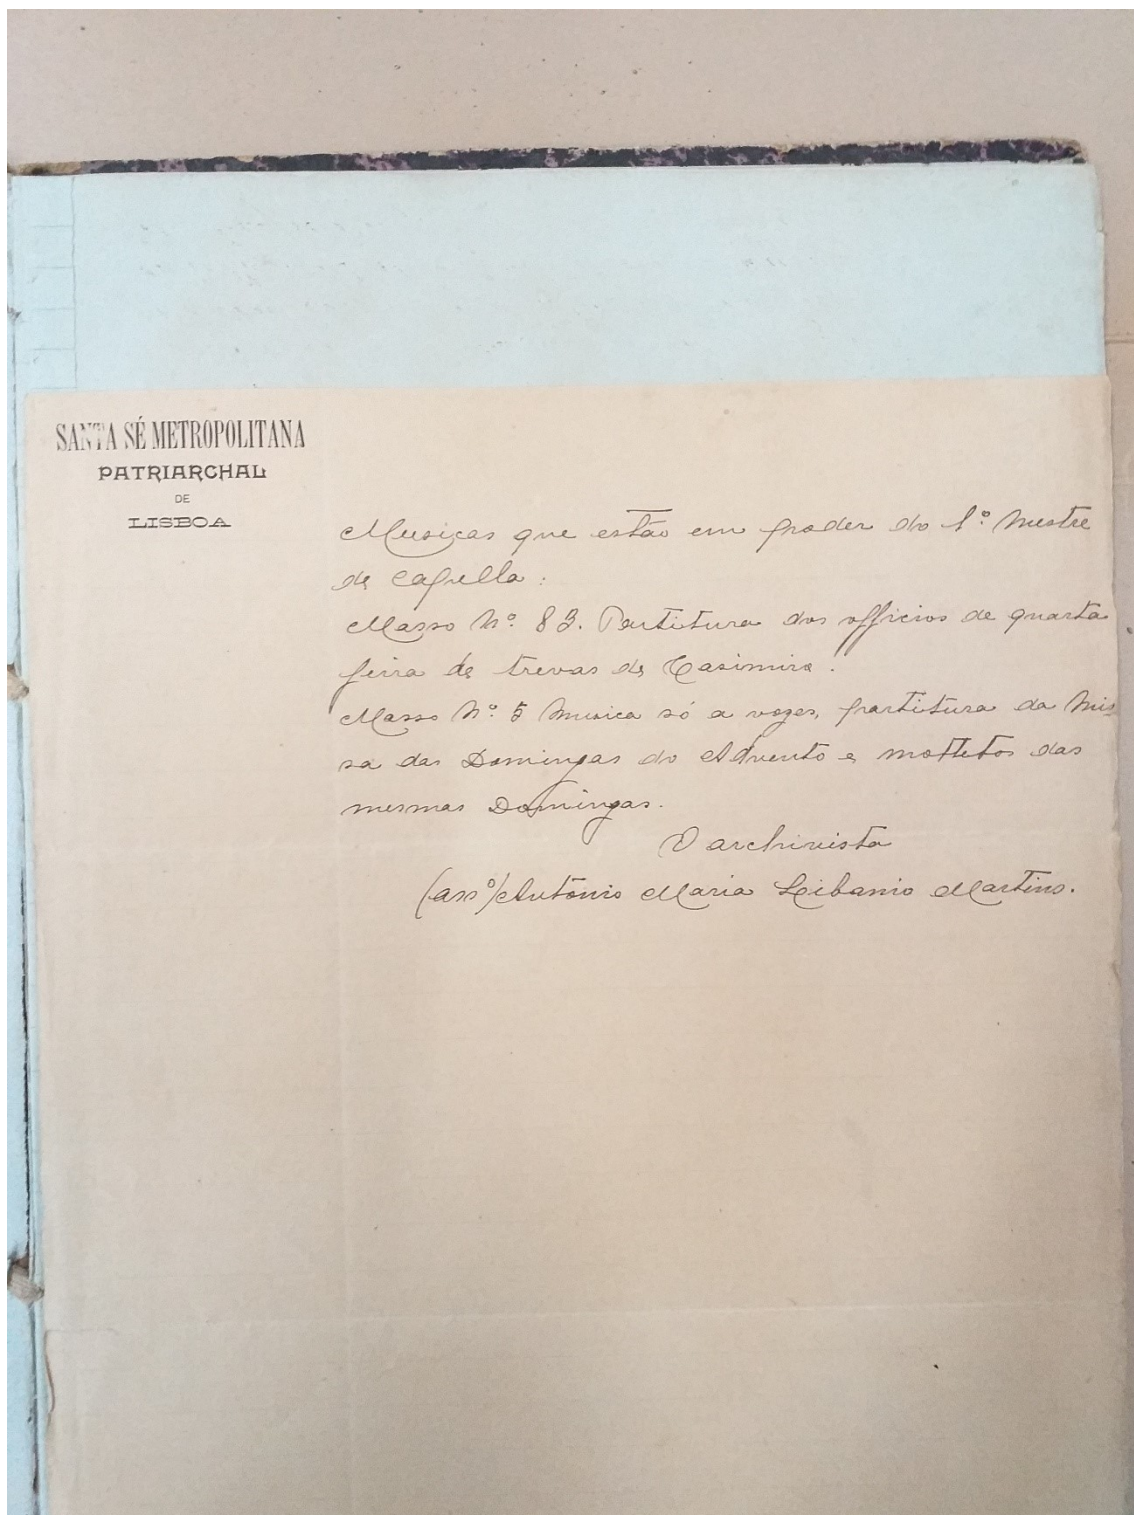 SANTA SÉ METROPOLITANA
PATRIARCHAL
DE
LISBOA
Musicas que estão em poder do 1º. Mestre
de Capella:
Masso Nº. 83. Partitura dos officios de quarta
feira de trevas de Casimiro.
Masso Nº. 5 Musica só a vozes, partitura da Mis
sa das Domingas do Advento e mottetos das
mesmas Domingas.
O archivista
(assº) António Maria Libanio Martins.